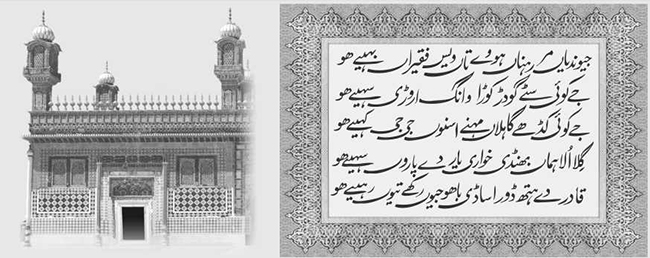 جیوندیاں مر رہناں ہووے تاں ویس فقیراں بہیے ھو
جے کوئی سٹے گودڑ کوڑا وانگ اروڑی سہیے ھو
جے کوئی کڈھے گاہلاں مہنے اسنوں جی جی کہیے ھو
گلا اُلاہماں بھنڈی خواری یار دے پاروں سہیے ھو
قادر دے ہتھ ڈور اساڈی باھو جیوں رکھے تیوں رہیے ھو